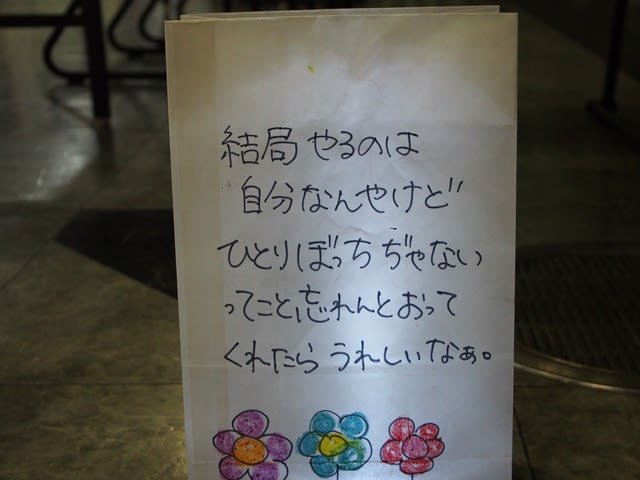 結局やるのは
自分なんやけど
ひとりぼっちぢゃない
ってこと忘れんとおって
くれたらうれしいなぁ。